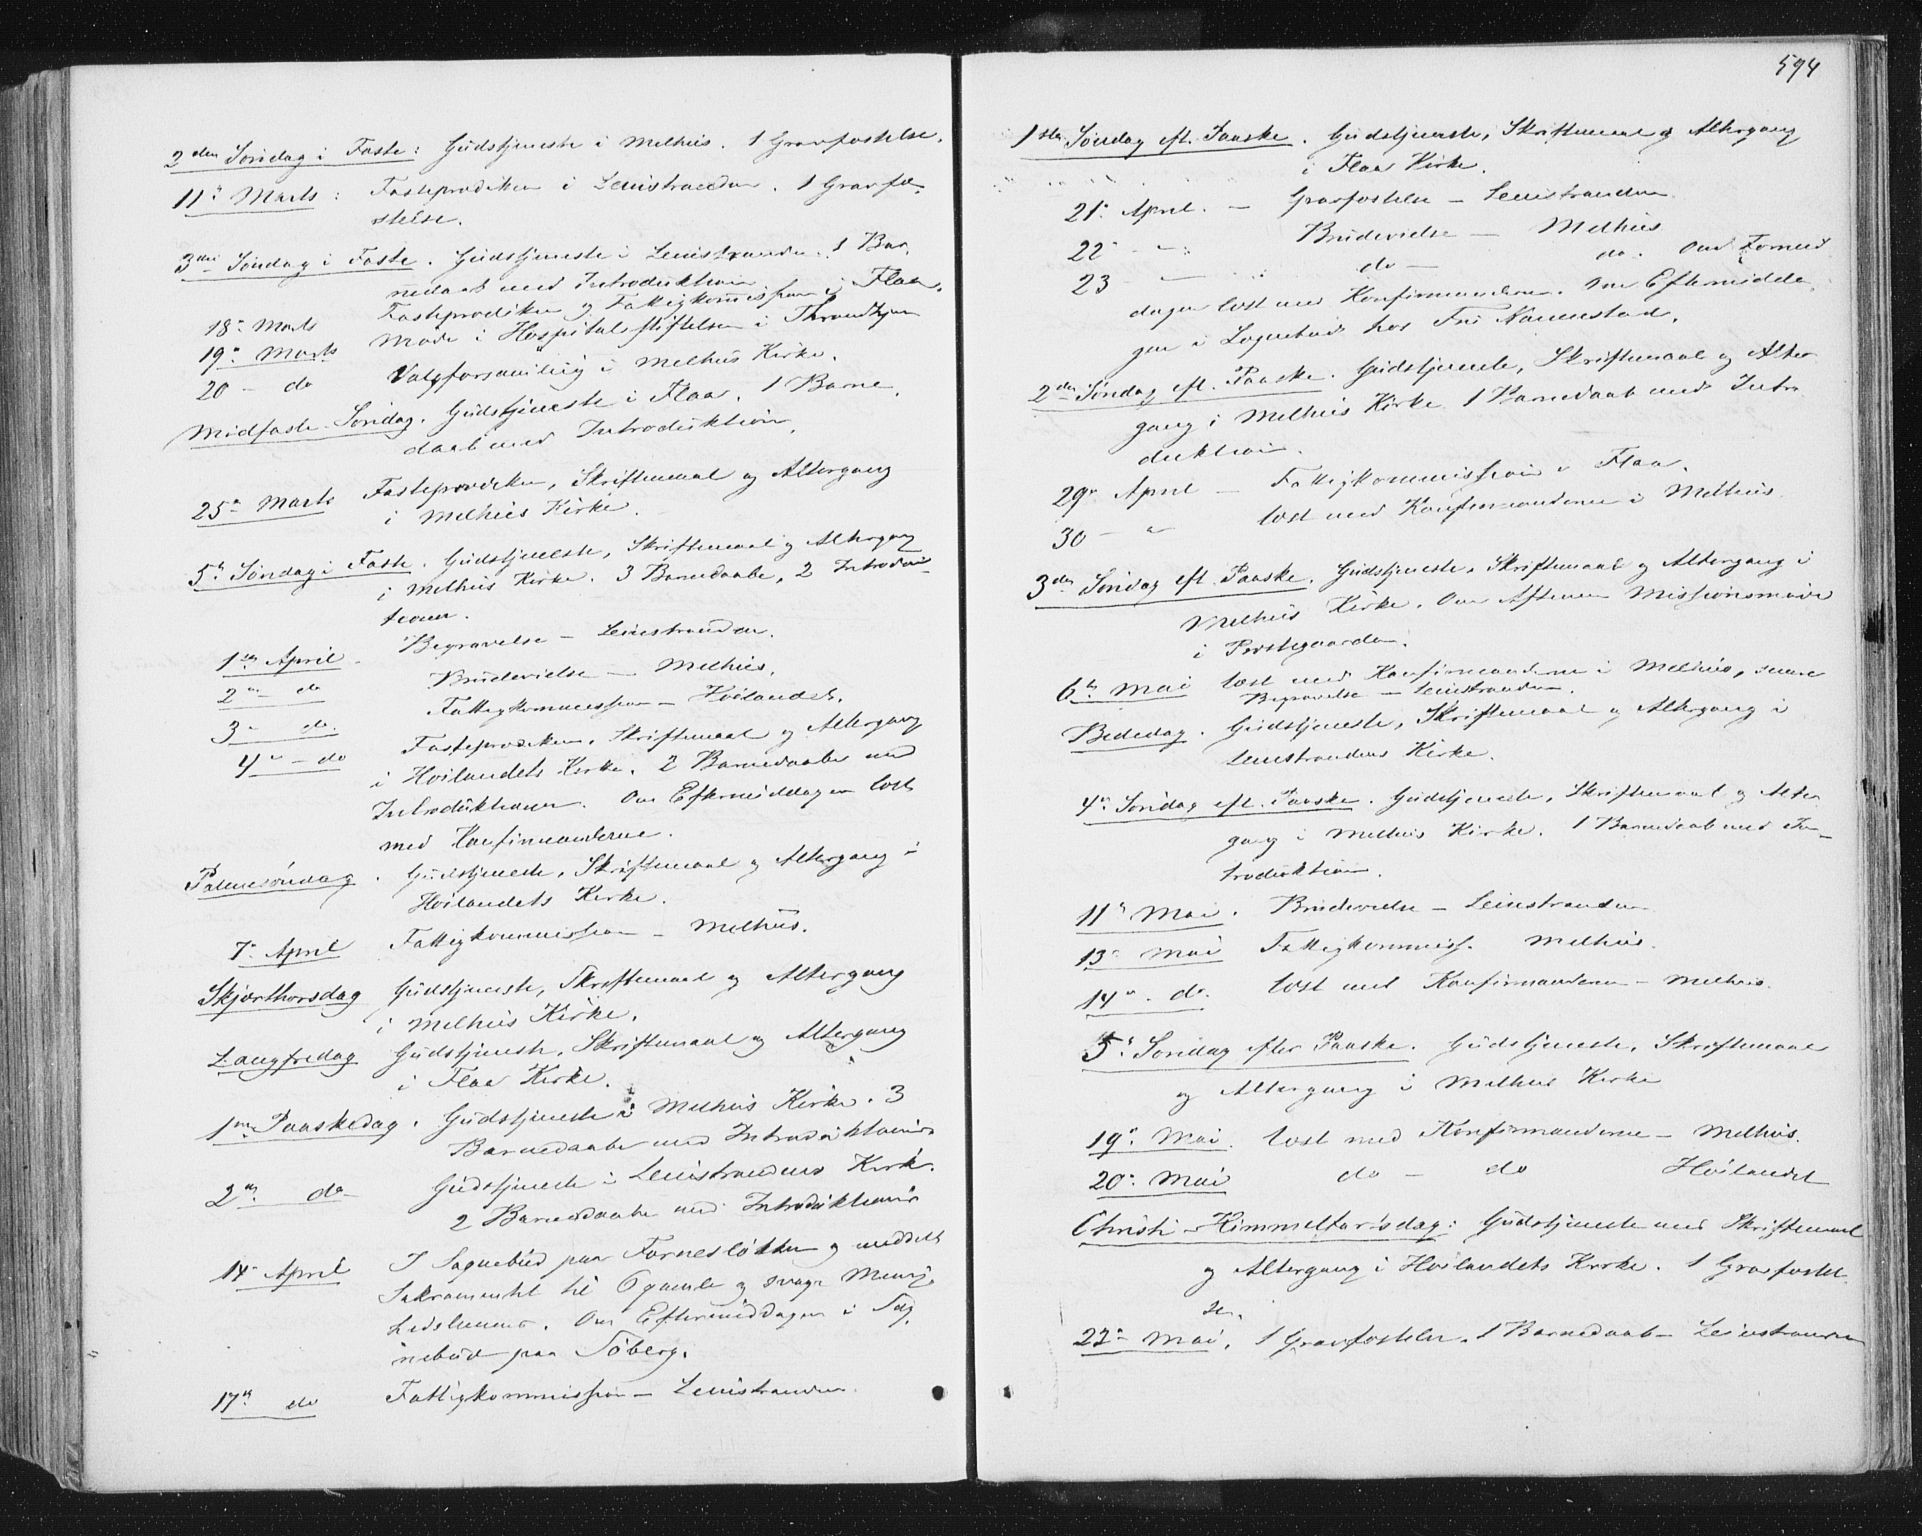 2den Søndag i Faste: Gudstjeneste i Melhus. 1 Gravfæstelse.
11te Marts: Fasteprædiken i Leinstranden. 1 Gravfæ-
stelse.
3die Søndag i Faste. Gudstjeneste i Leinstranden. 1 Bar-
nedaab med Introduktion
18de Marts Fasteprædiken og Fattigkommission i Flaa.
19de Marts Møde i Hospitalsstiftelsen i Throndhjem
20 - do Valgforsamling i Melhus Kirke.
Midfaste Søndag. Gudstjeneste i Flaa. 1 Barne-
daab med Introduktion.
25de Marts Fasteprædiken, Skriftemaal og Altergang
i Melhus Kirke.
5te Søndag i Faste. Gudstjeneste, Skriftemaal og Altergang
i Melhus Kirke. 3 Barnedaabe, 2 Introduk-
tioner.
1ste April - Begravelse - Leinstranden.
2den do Brudevielse - Melhus.
3die do. Fattigkommission - Høilandet.
4de - do Fasteprædiken, Skriftemaal og Altergang
i Høilandets Kirke. 2 Barnedaabe med
Introduktioner. Om Eftermiddagen læst
med Konfirmanderne.
Palmesøndag. Gudstjeneste, Skriftemaal og Altergang i
Høilandets Kirke.
7de April Fattigkommission - Melhus.
Skjærthorsdag Gudstjeneste, Skriftemaal og Altergang
i Melhus Kirke.
Langfredag Gudstjeneste, Skriftemaal og Altergang
i Flaa Kirke.
1ste Paaskedag. Gudstjeneste i Melhus Kirke. 3
Barnedaabe med Introduktioner
2den do - Gudstjeneste i Leinstrandens Kirke.
2 Barnedaabe med Introduktioner
14de April I Sognebud paa Fornesløkken og meddelt
Sakramentet til 6 gamle og svage Menig-
hedslemmer. Om Eftermiddagen i Sog-
nebud paa Søberg.
17de do Fattigkommission - Leinstranden.
594
1ste Søndag eft. Paaske. Gudstjeneste, Skriftemaal og Altergang
i Flaa Kirke.
21de April. - Gravfæstelse - Leinstranden.
22 - " Brudevielse - Melhus
23 - " do - do. Om Formid-
dagen læst med Konfirmanderne. Om Eftermidda-
gen i Sognebud hos Fru
2den Søndag eft. Paaske. Gudstjeneste, Skriftemaal og Alter-
gang i Melhus Kirke. 1 Barnedaab med Intro-
duktion.
29de April - Fattigkommission i Flaa.
30 - " læst med Konfirmanderne i Melhus
3die Søndag eft. Paaske. Gudstjeneste, Skriftemaal og Altergang i
Melhus Kirke. Om Aftenen Missionsmøde
i Præstegaarden.
6te Mai læst med Konfirmanderne i Melhus, senere
Begravelse - Leinstranden.
Bededag. Gudstjeneste, Skriftemaal og Altergang i
Leinstrandens Kirke.
4de Søndag eft. Paaske. Gudstjeneste, Skriftemaal og Alter-
gang i Melhus Kirke. 1 Barnedaab med In-
troduktion.
11te Mai. Brudevielse - Leinstranden
13de Mai Fattigkommiss. Melhus.
14de - do. læst med Konfirmanderne - Melhus.
5te Søndag efter Paaske. Gudstjeneste, Skriftemaal
og Altergang i Melhus Kirke
19de Mai. læst med Konfirmanderne - Melhus.
20de Mai do - do Høilandet
Christi Himmelfartsdag: Gudstjeneste med Skriftemaal
og Altergang i Høilandets Kirke. 1 Gravfæstel-
se.
22de Mai. 1 Gravfæstelse. 1 Barnedaab - Leinstranden